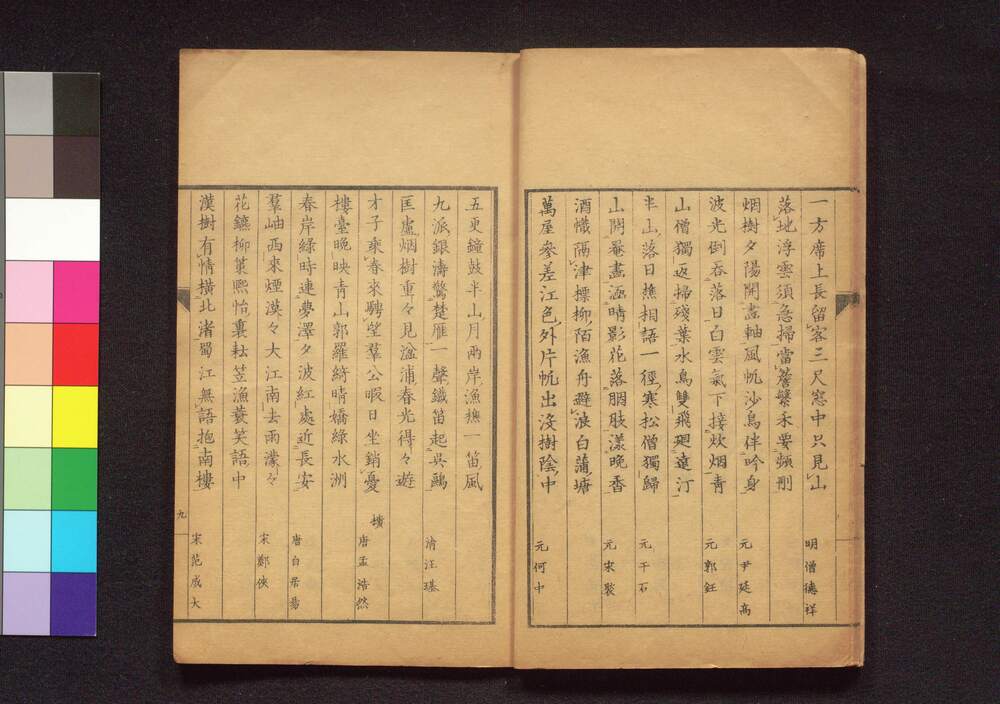 一方席上長留客三尺窓中只見山 明僧德祥
落地浮雲須急掃當簷繁禾要頻刪
烟樹夕陽開畫軸風帆沙鳥伴吟身 元尹廷高
波光倒吞落日白雲氣下接炊烟青 元郭鈺
山僧獨返掃殘葉水鳥雙飛廻遠汀
半山落日樵相語一徑寒松僧獨歸 元于石
山開罨畫涵晴影花落胭肢漾晚香 元宋褧
酒幟隔津標柳陌漁舟避浪白蒲塘
萬屋參差江色外片帆出沒樹陰中 元何中
五更鐘鼓半山月兩岸漁樵一笛風
九派銀濤驚楚雁一聲鐵笛起吳鷗 清汪琪
匡廬烟樹重々見湓浦春光得々遊
才子乘春來騁望羣公暇日坐銷憂 唐孟浩然
樓臺晚映青山郭羅綺晴嬌綠水洲
春岸綠時連夢澤夕波紅處近長安 唐白居易
羣岫西來煙漠々大江南去雨濛々 宋鄭俠
花鑣柳策熙怡裏耘笠漁蓑笑語中
漢樹有情橫北渚蜀江無語抱南樓 宋范成大
九